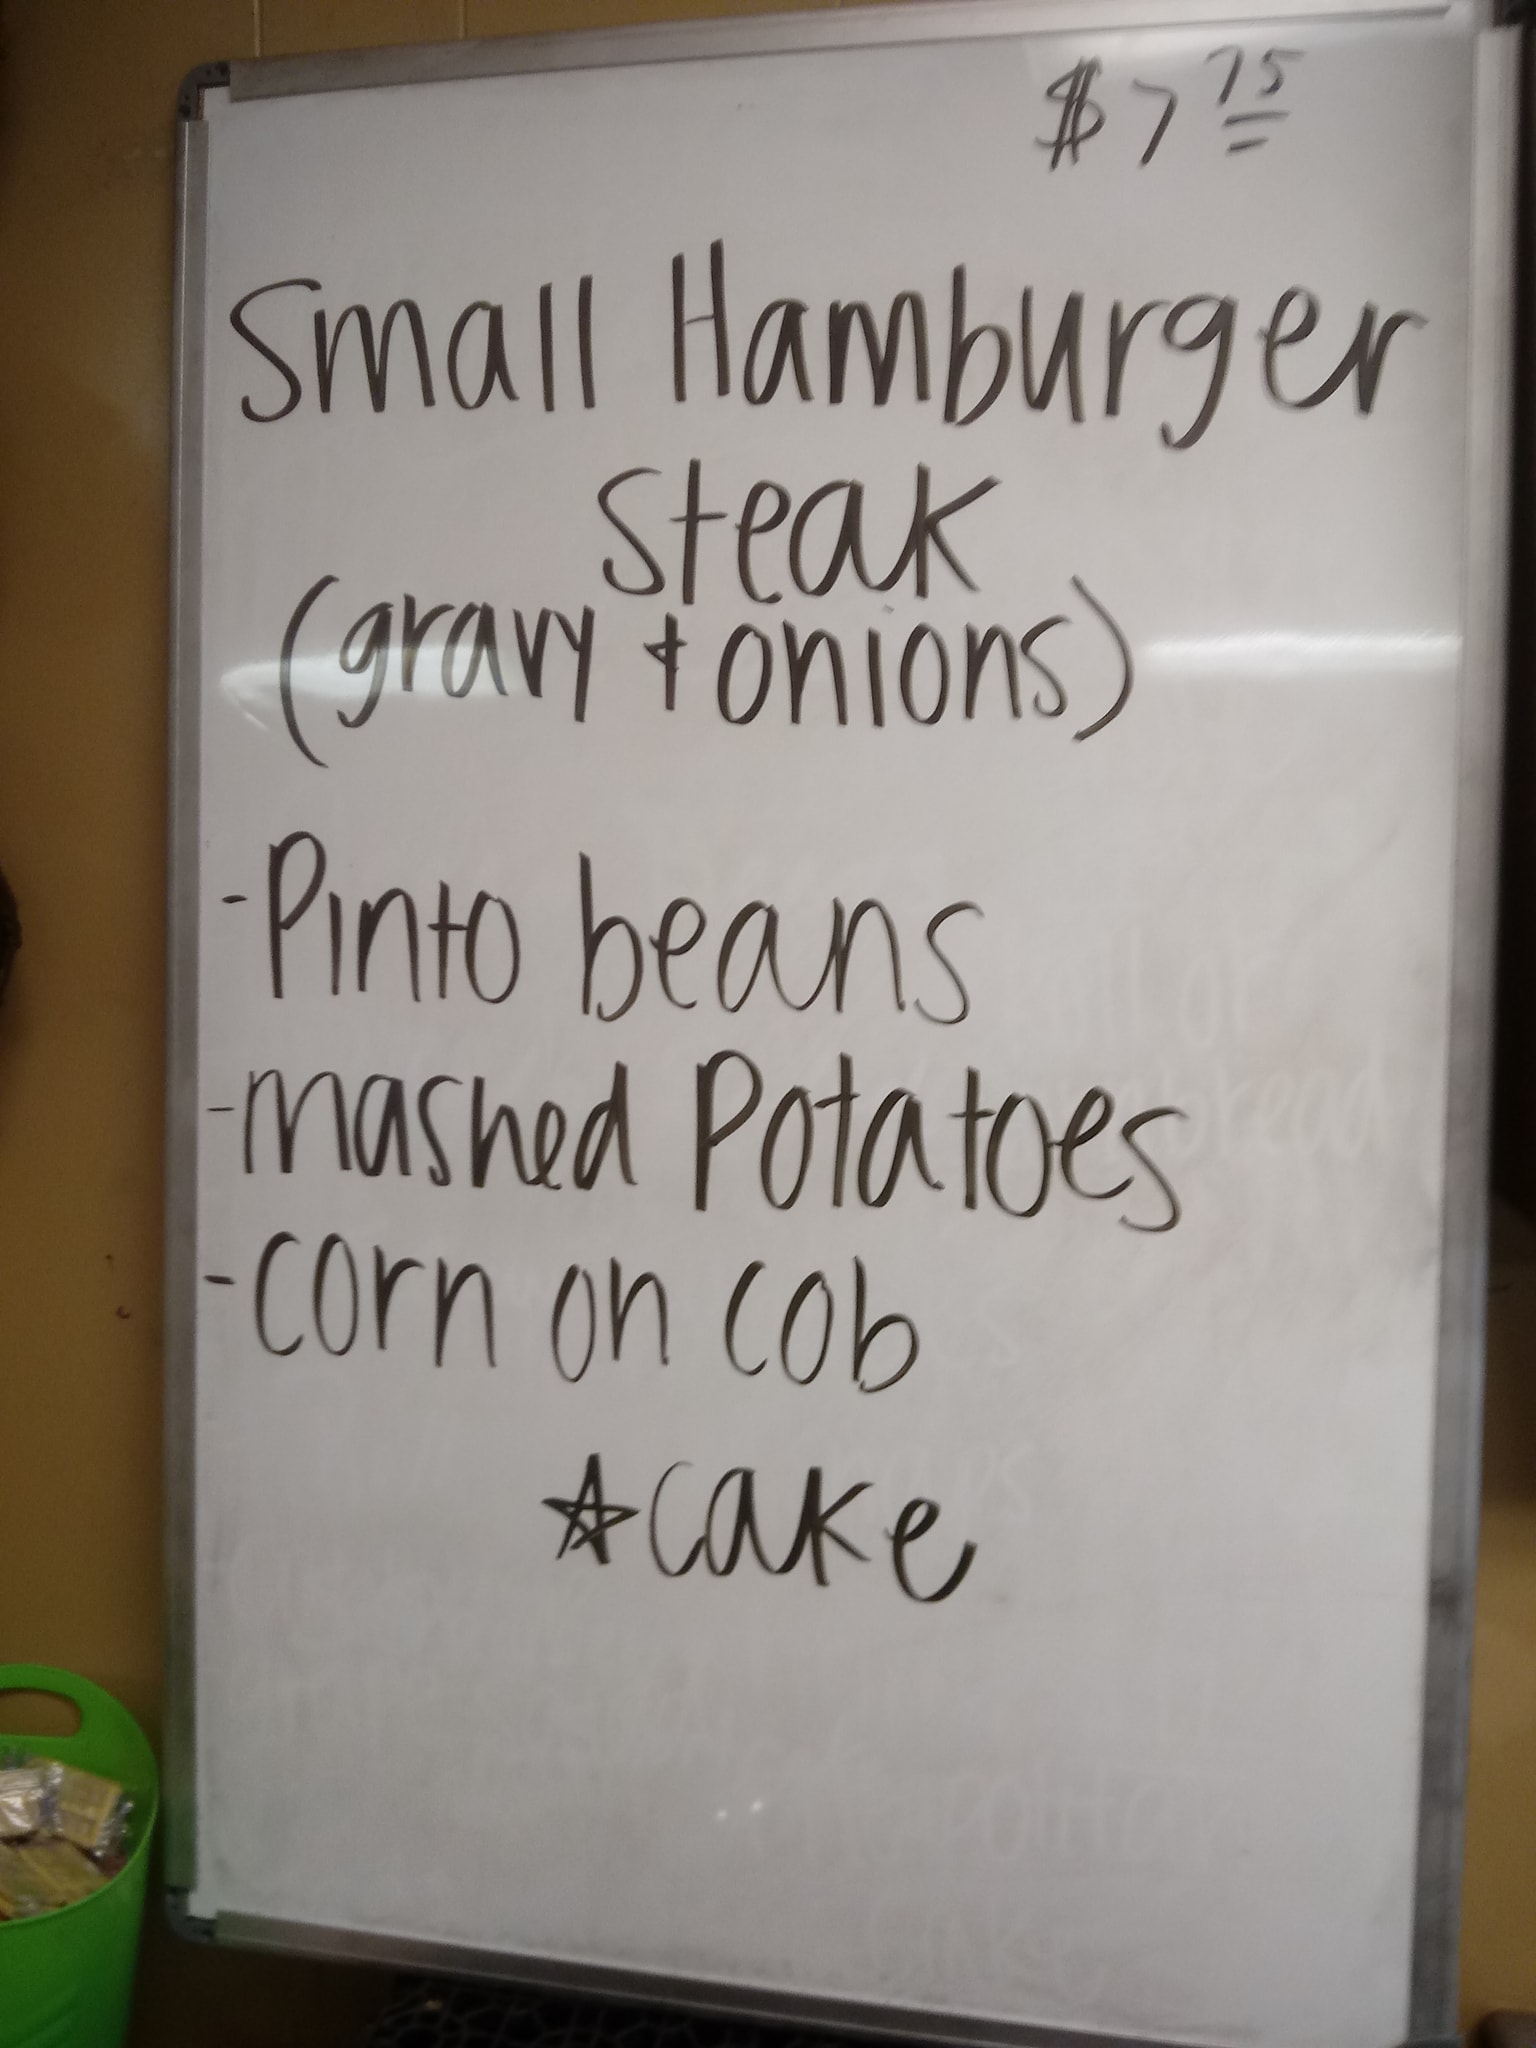 $7 75
Small Hamburger
Steak
(gravy + onions)
- Pinto beans
- mashed Potatoes
- corn on cob
☆ cake